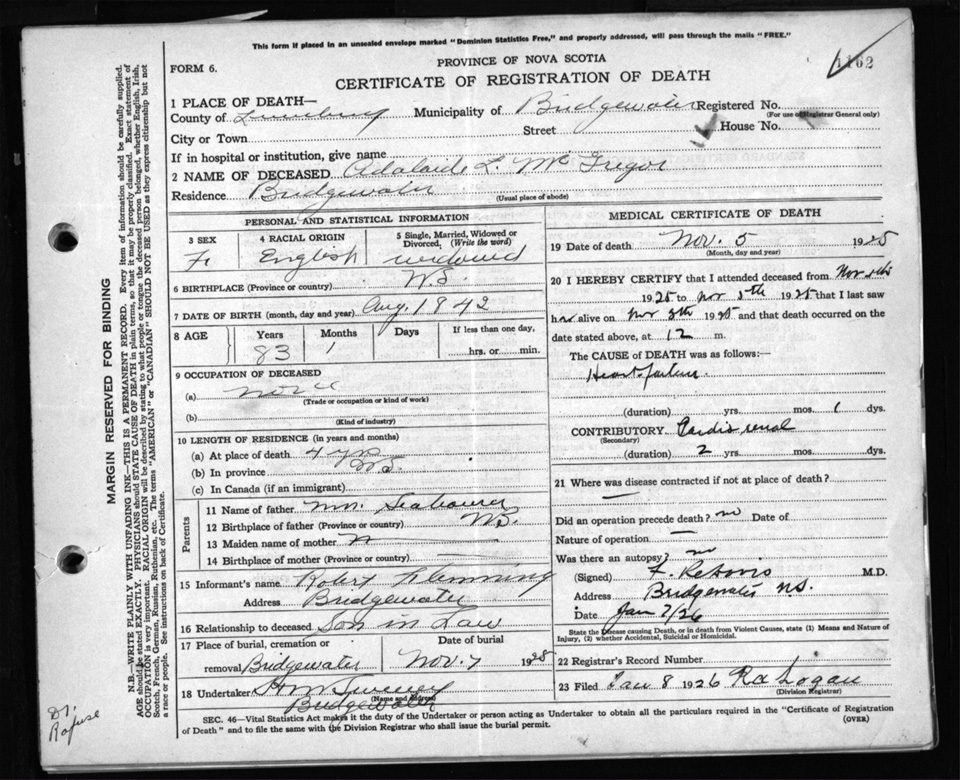 This form if placed in an unsealed envelope marked "Dominion Statistics Free," and properly addressed, will pass through the mails "FREE."
1162
FORM 6.
PROVINCE OF NOVA SCOTIA
CERTIFICATE OF REGISTRATION OF DEATH
1 PLACE OF DEATH—
County of Lunenburg Municipality of Bridgewater Registered No.
(For use of Registrar General only)
City or Town Street House No.
If in hospital or institution, give name
2 NAME OF DECEASED Adalaide L. McGregor
Residence Bridgewater (Usual place of abode)
PERSONAL AND STATISTICAL INFORMATION
3 SEX 4 RACIAL ORIGIN 5 Single, Married, Widowed or Divorced, (Write the word)
F. English widowed
6 BIRTHPLACE (Province or country) N.S.
7 DATE OF BIRTH (month, day and year) Aug. 1842
8 AGE Years Months Days If less than one day,
83 1 hrs. or min.
9 OCCUPATION OF DECEASED
(a) none
(Trade or occupation or kind of work)
(b)
(Kind of industry)
10 LENGTH OF RESIDENCE (in years and months)
(a) At place of death 4 yrs
(b) In province N.S.
(c) In Canada (if an immigrant)
Parents
11 Name of father Mr.
12 Birthplace of father (Province or country) N.S.
13 Maiden name of mother
14 Birthplace of mother (Province or country) —
15 Informant's name Robert Flemming
Address Bridgewater
16 Relationship to deceased Son in Law
17 Place of burial, cremation or removal Bridgewater Date of burial Nov. 7 1925
18 Undertaker
(Name and address)
Bridgewater
MEDICAL CERTIFICATE OF DEATH
19 Date of death Nov. 5 1925
(Month, day and year)
20 I HEREBY CERTIFY that I attended deceased from Nov
1925 to Nov 5th 1925 that I last saw
her alive on Nov 1925 and that death occurred on
date stated above, at 12 m.
The CAUSE of DEATH was as follows:—
Heart failure
(duration) yrs. mos. 1 dys.
CONTRIBUTORY Cardio renal
(Secondary)
(duration) 2 yrs. mos. dys.
21 Where was disease contracted if not at place of death?
—
Did an operation precede death? no Date of
Nature of operation —
Was there an autopsy? no
(Signed) M.D.
Address Bridgewater N.S.
Date Jan 7/26
State the Disease causing Death, or in death from Violent Causes, state (1) Means and Nature of Injury, (2) whether Accidental, Suicidal or Homicidal.
22 Registrar's Record Number
23 Filed Jan 8 1926 Logan
(Division Registrar)
SEC. 46—Vital Statistics Act makes it the duty of the Undertaker or person acting as Undertaker to obtain all the particulars required in the "Certificate of Registration of Death" and to file the same with the Division Registrar who shall issue the burial permit.
(OVER)
MARGIN RESERVED FOR BINDING
N.B.—WRITE PLAINLY WITH UNFADING INK—THIS IS A PERMANENT RECORD. Every item of information should be carefully supplied.
AGE should be stated EXACTLY. PHYSICIANS should STATE CAUSE OF DEATH in plain terms, so that it may be properly classified. Exact statement of
OCCUPATION is very important. RACIAL ORIGIN will be described by stating to what people or tongue the deceased person belonged, whether English, Irish,
Scotch, French, German, Russian, Ruthenian, etc. The terms "AMERICAN" or "CANADIAN" SHOULD NOT BE USED as they express citizenship but not
a race or people. See instructions on back of Certificate.
Dr.
Rafuse